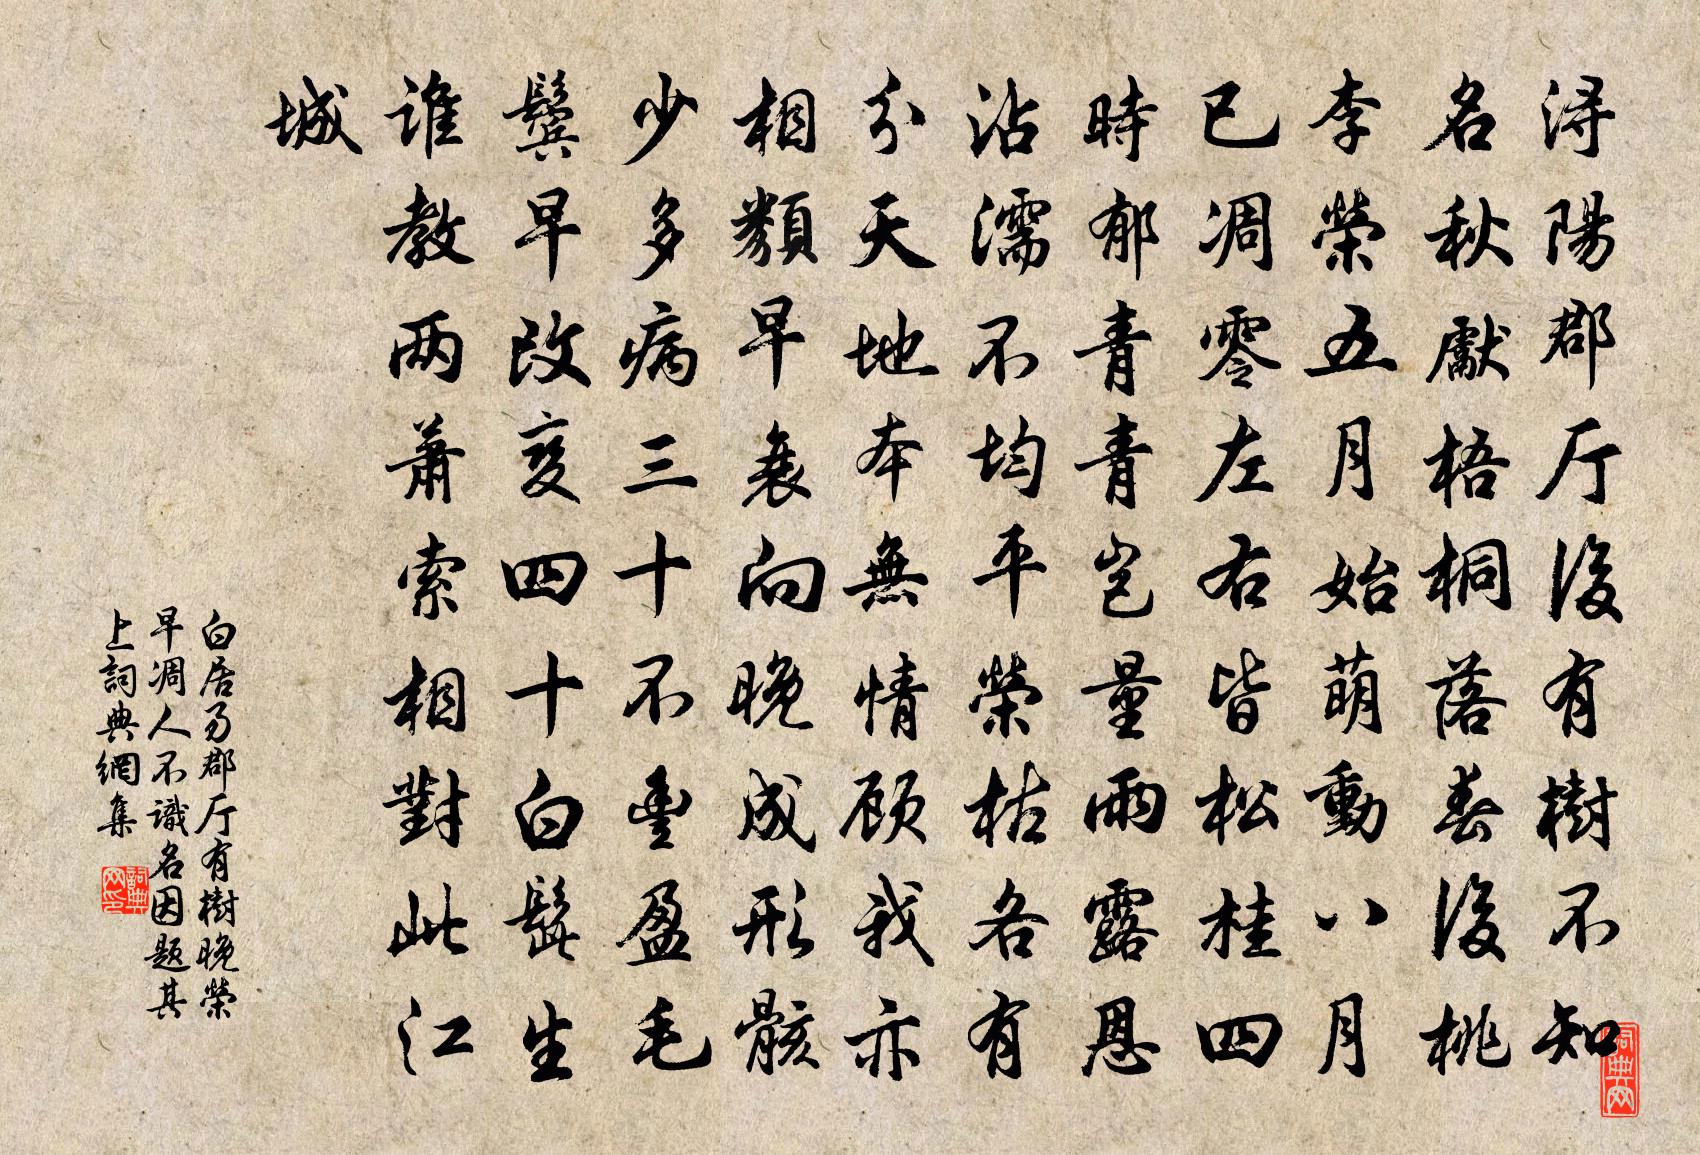 浔陽郡厅後有樹不知
名秋獻梧桐落春後桃
李榮五月始萌動八月
已凋零左右皆松桂四
時郁青青岂量雨露恩
沾濡不均平榮枯各有
分天地本無情顾我亦
相類早衰向晚成形骸
少多病三十不豊盈毛
鬓早改变四十白髭生
谁教两萧索相對此江
城
白居易郡厅有樹晚榮
早凋人不識名因题其
上詞典網集
詞典网印
詞典网